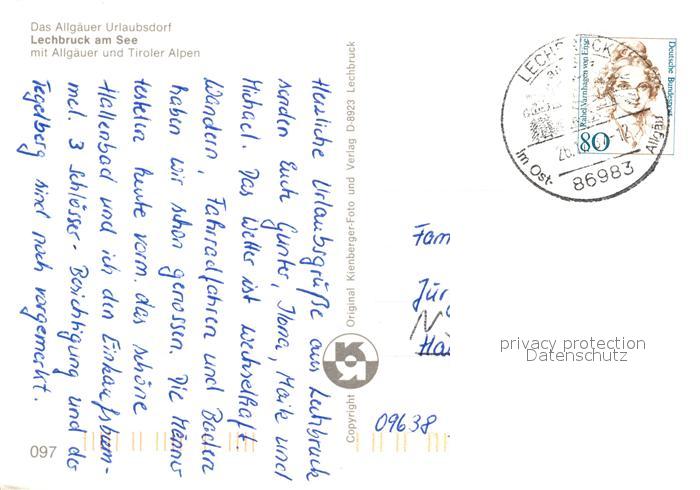 Das Allgäuer Urlaubsdorf
Lechbruck am See
mit Allgäuer und Tiroler Alpen
Herzliche Urlaubsgrüße aus Lechbruck
senden Euch Gunter, Ilona, Maik und
Michael. Das Wetter ist wechselhaft.
Wandern, Fahrradfahren und Baden
haben wir schon genossen. Die Männer
testeten heute vorm. das schöne
Hallenbad und ich den Einkaufsbum-
mel. 3 Schlösser-Besichtigung und der
Tegelberg sind noch vorgemerkt.
097
Copyright Original Kienberger-Foto und Verlag D-8923 Lechbruck
Deutsche Bundespost
Rahel Varnhagen von Ense
80
LECHBRUCK
im Ost-
Allgäu
86983
Fam
Jür
N
09638
privacy protection
Datenschutz